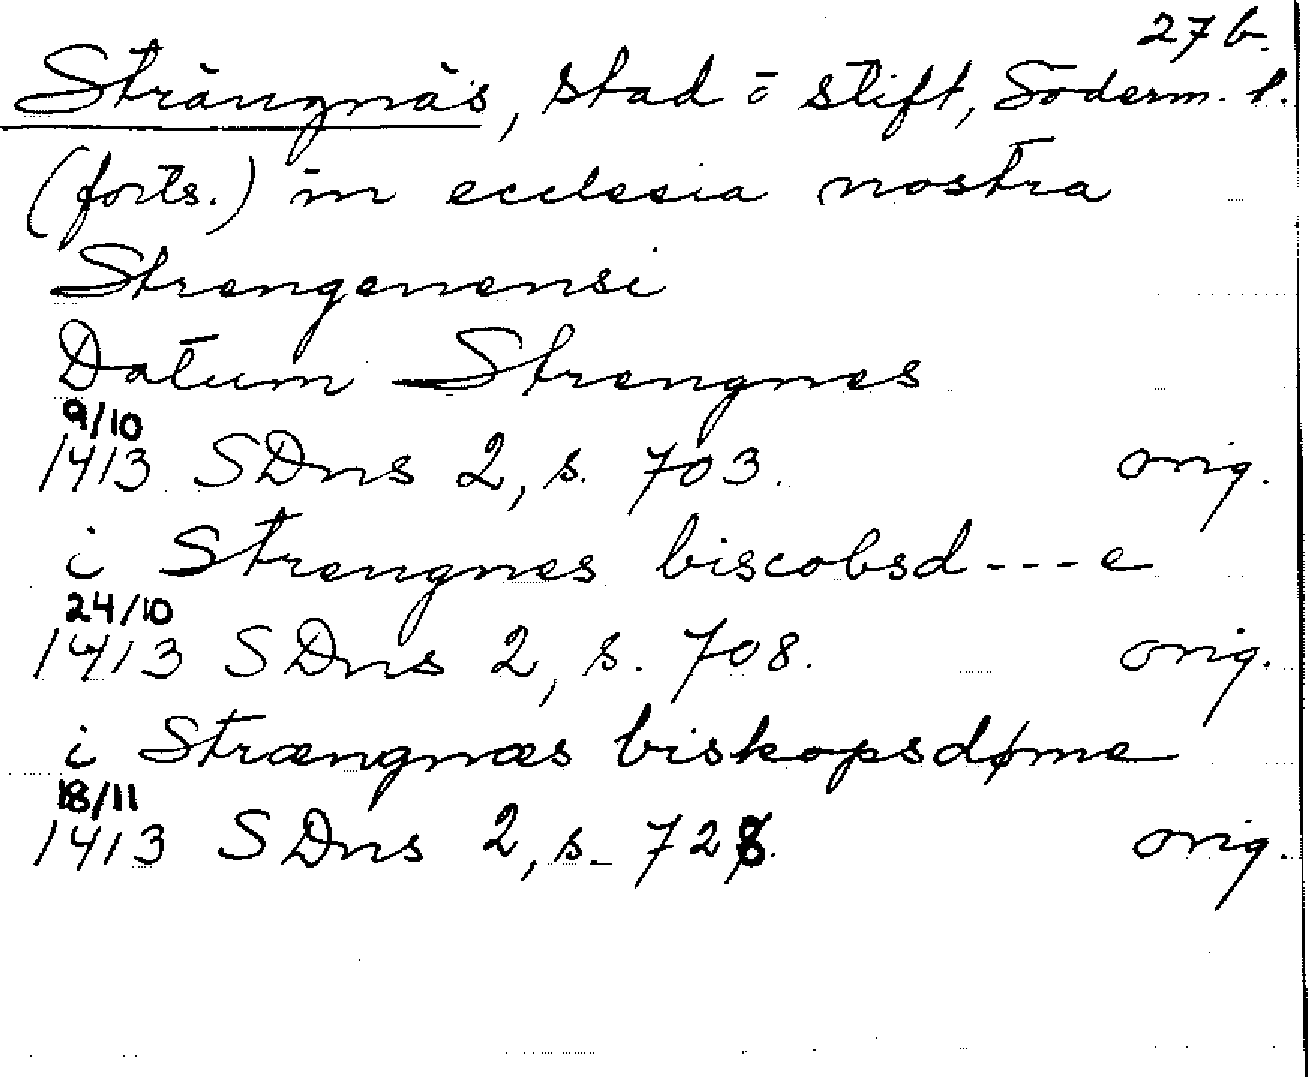 27 b.
Strängnäs, stad o stift, Söderm. l.
(forts.) in ecclesia nostra
Strengenensi
Datum Strengnes
9/10
1413 SDns 2, s. 703. orig.
i Strengnes biscobsd---e
24/10
1413 SDns 2, s. 708. orig.
i Strængnæs biskopsdøme
18/11
1413 SDns 2, s. 728. orig.